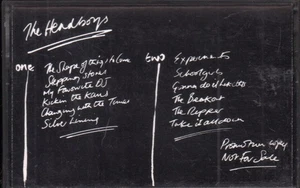 The Headboys
one
The Shape of things to Come
Stepping Stones
My Favourite DJ
Kickin the Kans
Changing with the Times
Silver Lining
two
Experiments
Schoolgirls
Gonna do it like this
The Breakout
The Ripper
Take it all down
Promotion copy
Not For Sale